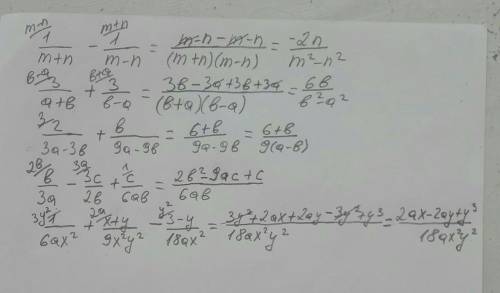 m-n m+n
1/(m+n) - 1/(m-n) = (m-n-m-n)/((m+n)(m-n)) = -2n/(m²-n²)
b-a b+a
3/(a+b) + 3/(b-a) = (3b-3a+3b+3a)/((b+a)(b-a)) = 6b/(b²-a²)
3
2/(3a-3b) + b/(9a-9b) = (6+b)/(9a-9b) = (6+b)/(9(a-b))
2b 3a 1
b/3a - 3c/2b + c/6ab = (2b²-9ac+c)/6ab
3y² 2a y²
1/6ax² + (x+y)/9x²y² - (3-y)/18ax² = (3y²+2ax+2ay-3y²+y³)/18ax²y² = (2ax-2ay+y³)/18ax²y²